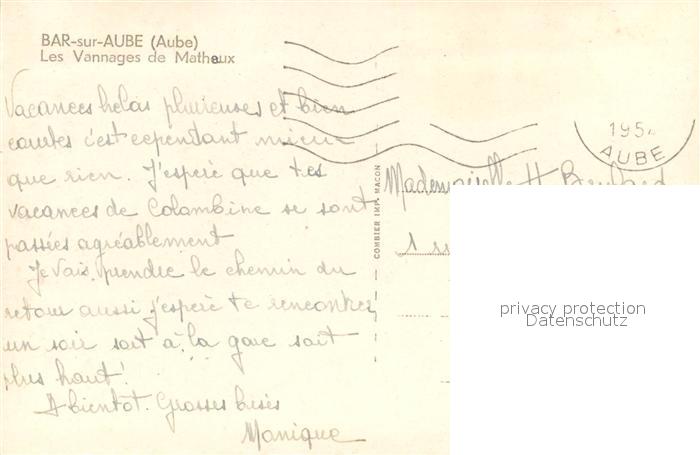 BAR-sur-AUBE (Aube)
Les Vannages de Mathaux
Vacances helas pluvieuses et bien
courtes c'est cependant mieux
que rien. J'espère que tes
vacances de Colombine se sont
passées agréablement
Je vais prendre le chemin du
retour aussi j'espère te rencontrer
un soir soit à la gare soit
plus haut!
A bientot. Grosses bises
Monique
COMBIER IMP. MACON
195
AUBE
Mademoiselle H
1
privacy protection
Datenschutz